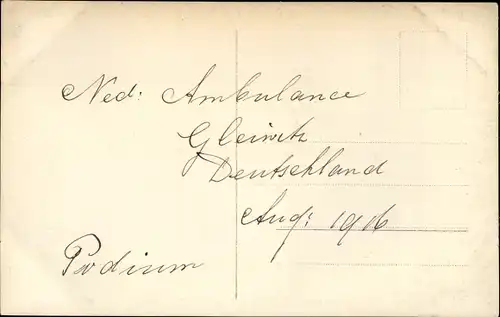 Ned: Ambulance
Gleiwitz
Deutschland
Aug: 1916
Podium